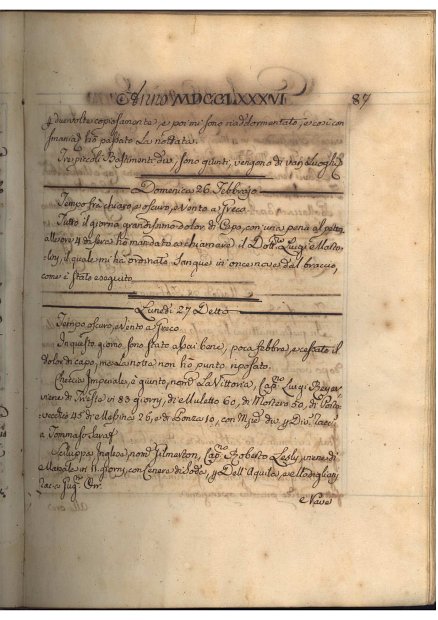 Anno MDCCLXXXVI 87
due volte copiosamente, e poi mi sono raddormentato, e così con
smania hò passato La nottata.
Tre piccoli Bastimenti sono giunti, vengono di varj Luoghi
Domenica 26 Febbrajo
Tempo frà chiaro, e oscuro, e Vento a Greco.
Tutto il giorno grandissimo dolor di Capo, con una pena al petto,
alle ore 4 di sera hò mandato a chiamare il Dott.re Luigi
il quale mi hà ordinato Sangue in once nove dal braccio,
come è stato eseguito
Lunedì 27 Detto
Tempo oscuro, e Vento a Greco.
In questo giorno sono stato assai bene, poca febbre, e cessato il
dolor di capo, ma La notte non hò punto riposato.
Checcia Imperiale, è giunta, nom.a La Vittoria, Cap.no Luigi
viene di Trieste in 83 giorni, di Mulletto 60, di 50, di Porto
vecchio 45 di Messina 26, e di Ponza 10, con
a Tommaso
Sciluppa Inglese nom.a Cap.no Roberto viene di
in 11 giorni, con Cenere di Soda, Dell' Aquila,
Orr.
e Nave